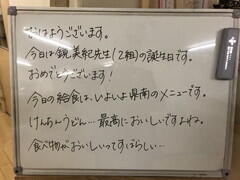 おはようございます。
今日は鋭美紀先生(2組)の誕生日です。
おめでとうございます!
今日の給食は、いよいよ県南のメニューです。
けんちゃうどん…最高においしいですよね。
食べ物がおいしいってすばらしい…